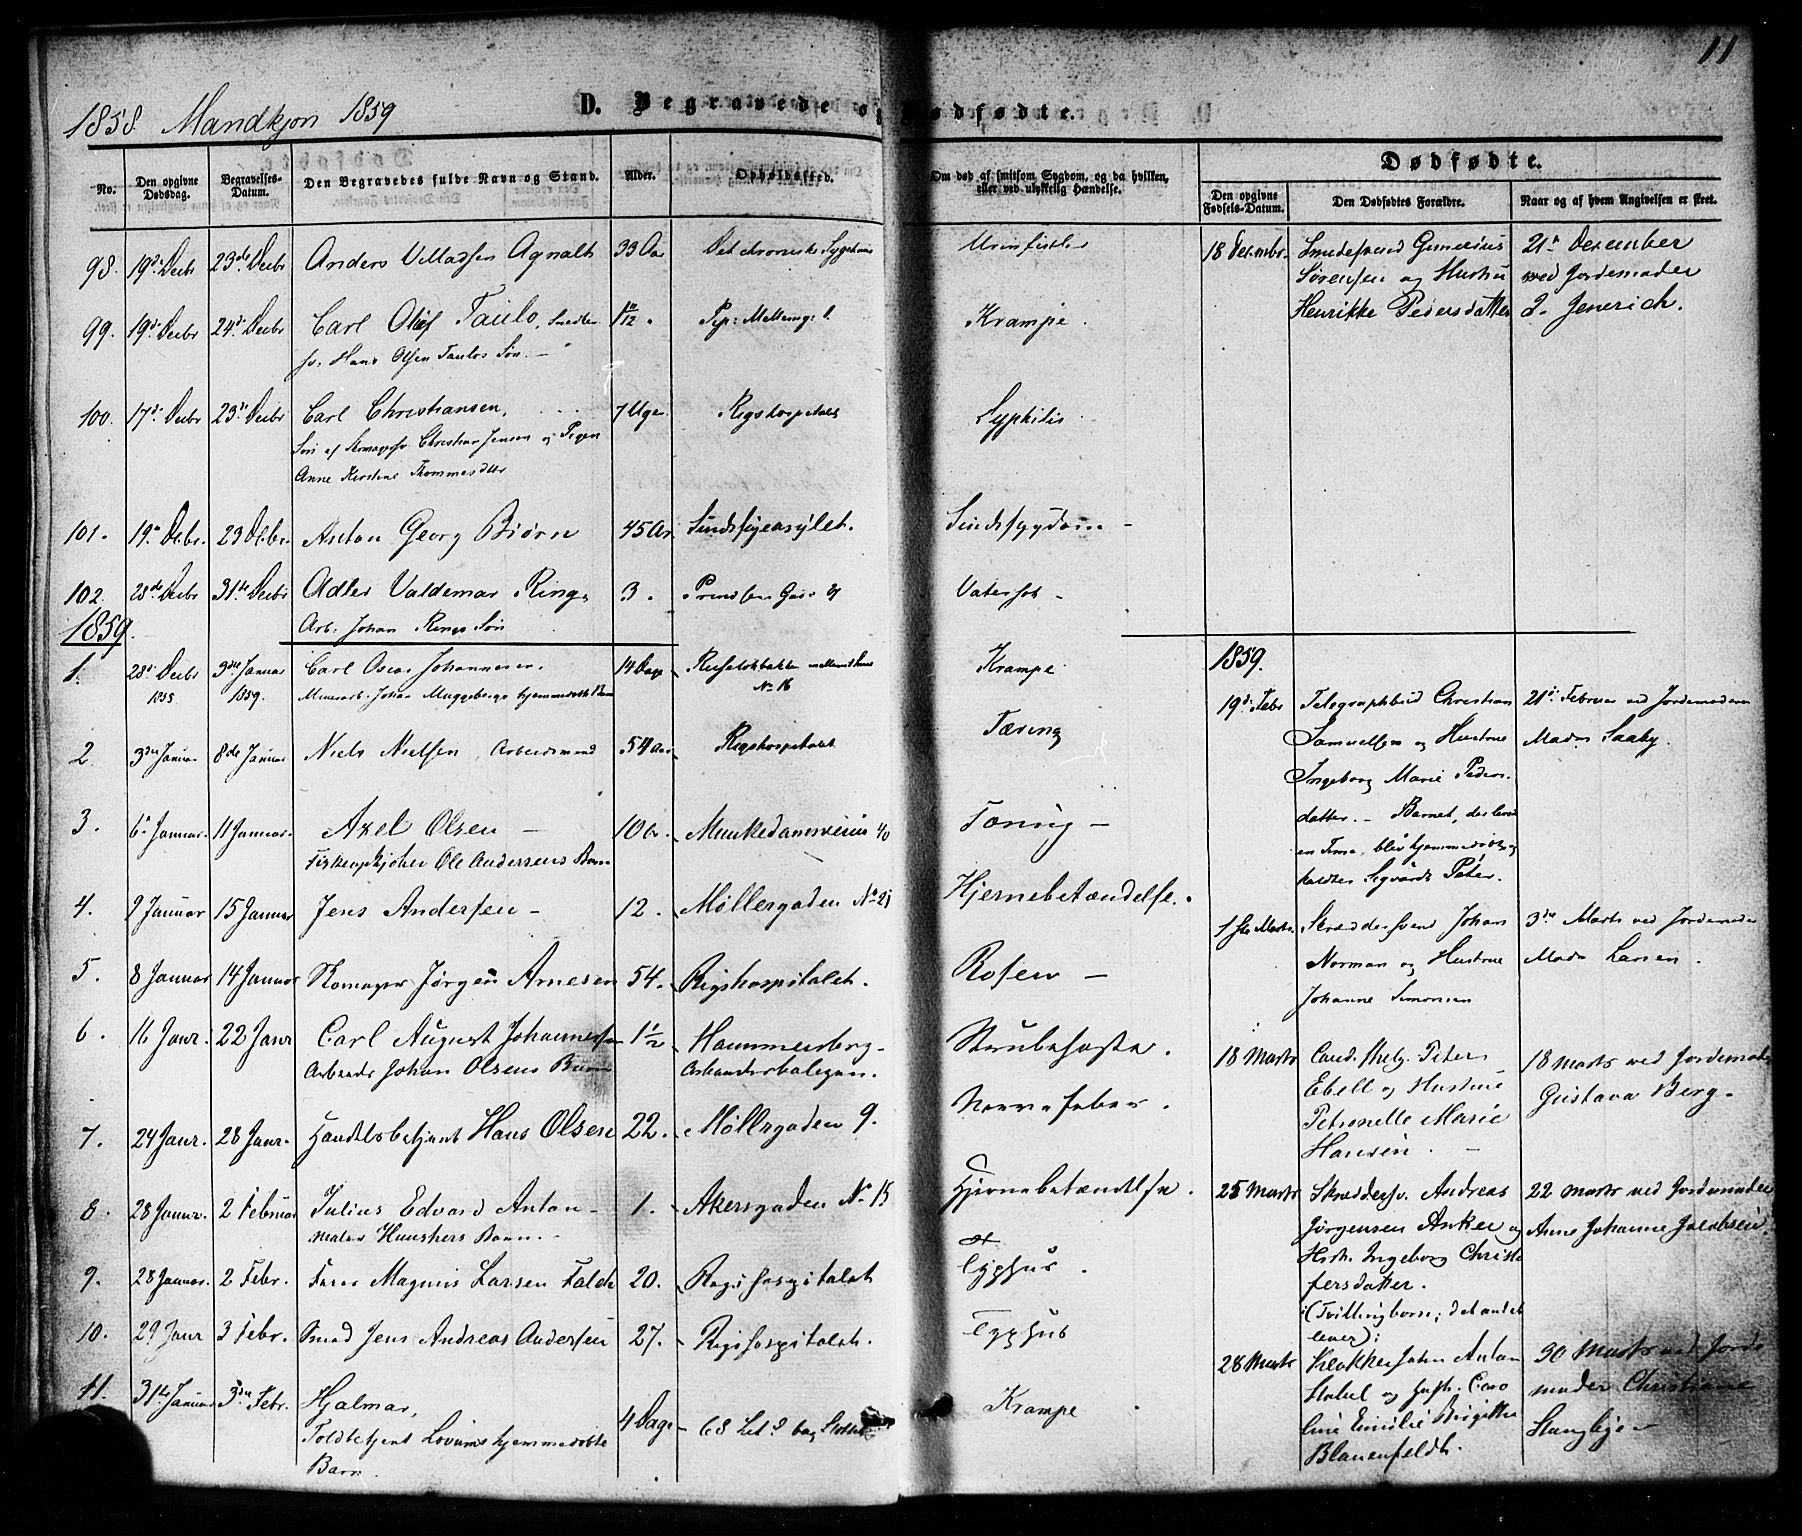 11
1858. Mandkjøn 1859
D. Begravede og Dødfødte.
No.
Den opgivne Dødsdag.
Begravelses-Datum.
Den Begravedes fulde Navn og Stand.
Alder.
Opholdssted.
Om død af smitsom Sygdom, og da hvilken, eller ved ulykkelig Hændelse.
Dødfødte.
Den opgivne Fødsels-Datum.
Den Dødfødtes Forældre.
Naar og af hvem Angivelsen er skeet.
98. 19de Decbr 23de Decbr Anders Villadsen Agnalt 33 Aar Det chroniske Sygehuus Urinfistler
99. 19de Decbr 24de Decbr Carl Olaf Taulo, 1 Krampe.
sv. Hans Olsen Taulos Søn. –
100. 17de Decbr 23de Decbr Carl Christiansen, 7 Uger Rigshospitalet Syphilis
Søn af Skomagersv. Christian Jensen og Pigen
Anne Kirstine Thommesdtr
101. 19de Decbr. 23 Decbr. Anton Georg Biørn 45 Aar Sindssygeasylet. Sindssygdom –
102. 28de Decbr 31te Decbr Adler Valdemar Ring, 3. Prindsens Gade Vatersot –
Arb. Johan Rings Søn
1859.
1. 28de Decbr 1858 3die Januar 1859. Carl Oscar Johannesen. 14 Dage No 16 Krampe
Johan Muggebergs hjemmedøbte Barn
2. 3die Januar 8de Januar Niels Nielsen, Arbeidsmand 54 Aar Rigshospitalet Tæring
3. 6te Januar. 11 Januar. Axel Olsen – 10 Munkedamsveien 40 Tæring –
Ole Andersens Barn
4. 9 Januar 15 Januar Jens Andersen – 12. Møllergaden No 21 Hjernebetændelse.
5. 8 Januar 14 Januar Skomager Jørgen Arnesen 54. Rigshospitalet. Rosen –
6. 16 Janr. 22 Janr Carl August Johannesen 1½ Hammersberg – Strubehoste.
Johan Olsens Barn
7. 24 Janr. 28 Janr. Handelsbetjent Hans Olsen 22. Møllergaden 9. Nervefeber.
8. 28 Janr. 2 Februar Julius Edvard Anton – 1. Akersgaden No 15 Hjernebetændelse.
Maler Barn. –
9. 28 Januar. 2 Febr. Magnus Larsen Falch 20. Rigshospitalet Typhus.
10. 29 Janr 3 Febr. Smed Jens Andreas Andersen 27. Rigshospitalet. Typhus
11. 31te Januar 3die Febr. Hjalmar, 4 Dage bag Slottet Krampe
Toldbetjent Lovums hjemmedøbte
Barn.
18 Decmbr. Smedesvend Gunerius
Sørensen og Hustru
Henrikke Pedersdatter
21de December
ved Jordemoder
J. Jenerich.
1859.
19de Febr Telegraphbud Christian
Samuelsen og Hustrue
Ingeborg Marie Peders
datter. – Barnet, der levede
en Time, blev hjemmedøbt og
kaldtes Sigvard Peter.
21de Februar ved Jordemoderen
Mad. Saaby.
1ste Marts. Skræddersvend Johan
Norman og Hustrue
Johanne Simonsen
3die Marts ved Jordemoder
Mad. Larsen.
18 Marts Cand. theolg. Peter
Ebell og Hustrue
Petronelle Marie
Hansen. –
18 Marts ved Jordemoder
Gustava Berg.
25 Marts Skræddersv. Andreas
Jørgensen Anker og
Hustr. Ingeborg Christo
fersdatter.
(Tvillingbørn; det andet
lever);
22 Marts ved Jordemoder
Anne Johanne Jacobsen.
28 Marts Anton
Stabel og Hustr. Caro
line Emilie Birgitte
Blauenfeldt.
30 Marts ved Jorde
moder Christiane
Stanglye –